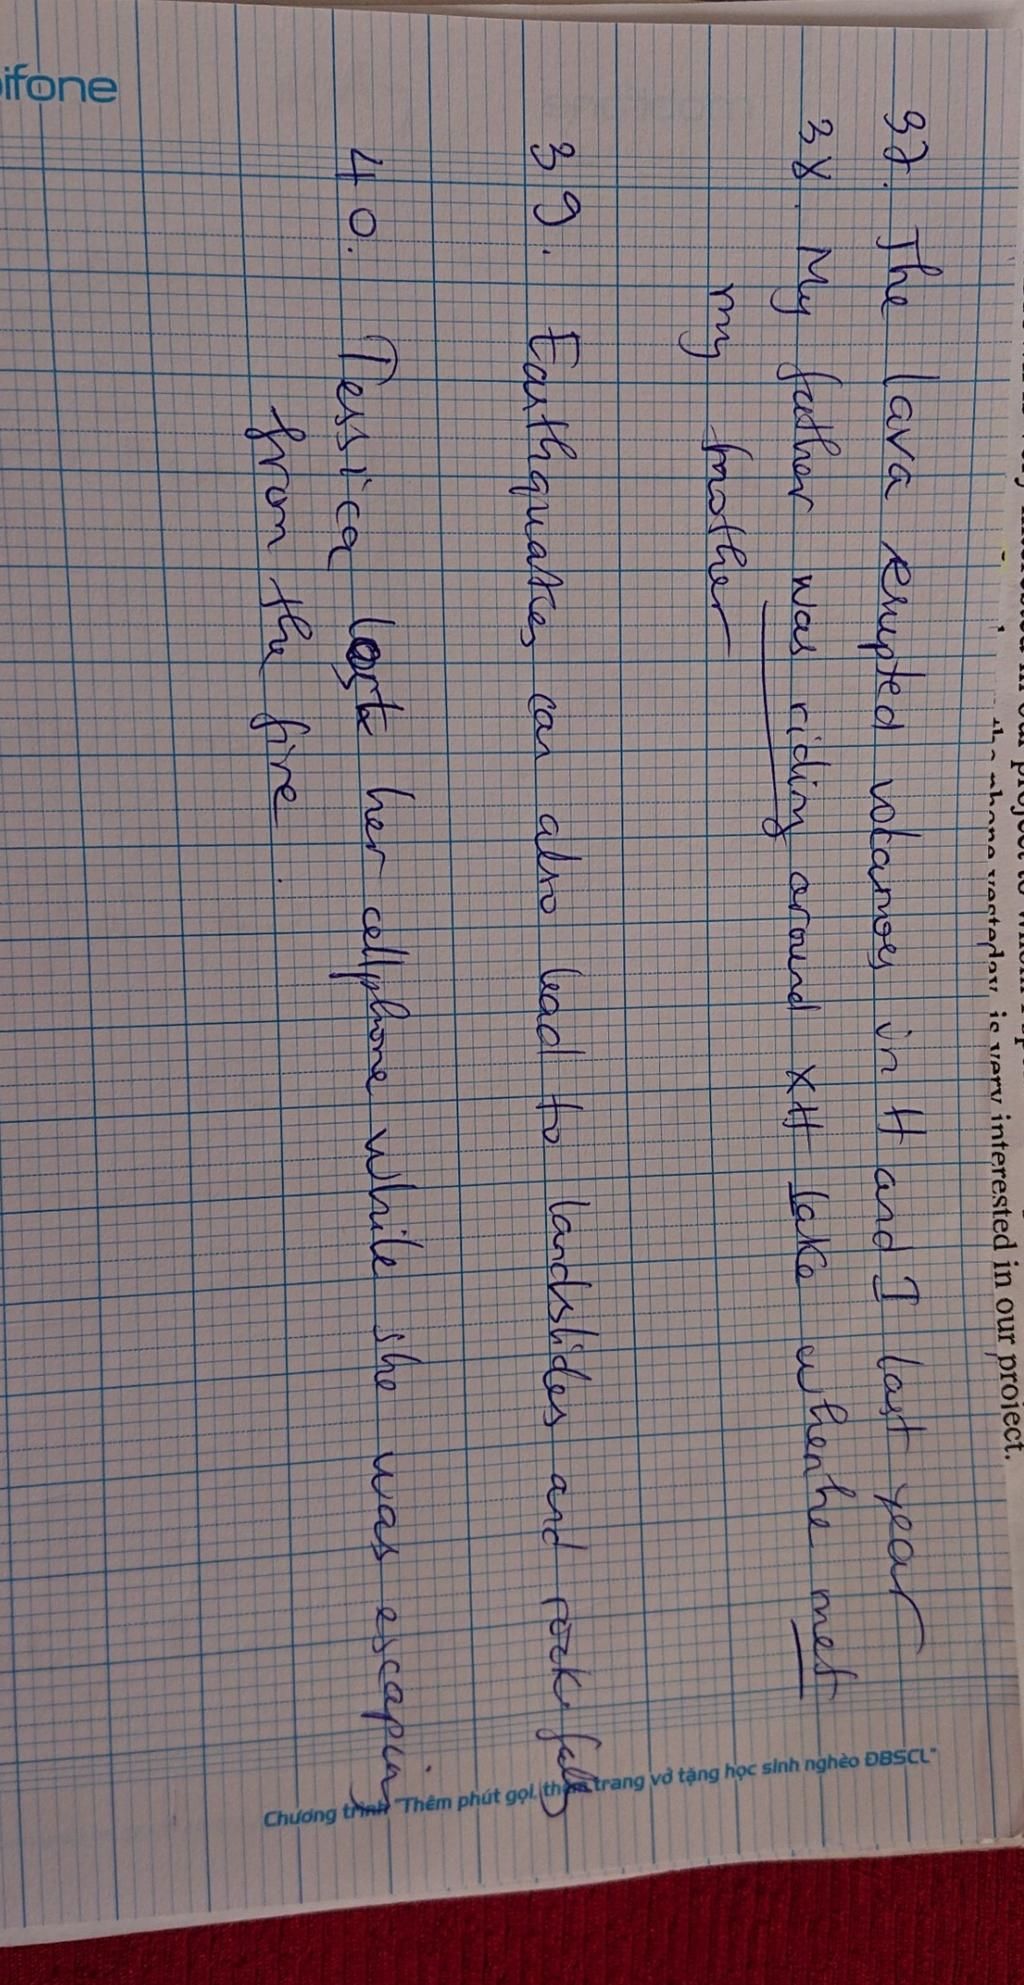 is very interested in our project.
37. The lava erupted volcanoes in H and I last year
38. My father was riding around XH Lake when he met
my mother
39. Earthquakes can also lead to landslides and rock falls
40. Jessica lost her cellphone while she was escaping
from the fire.
ifone
Chương trình "Thêm phút gọi, thêm trang vở tặng học sinh nghèo ĐBSCL"